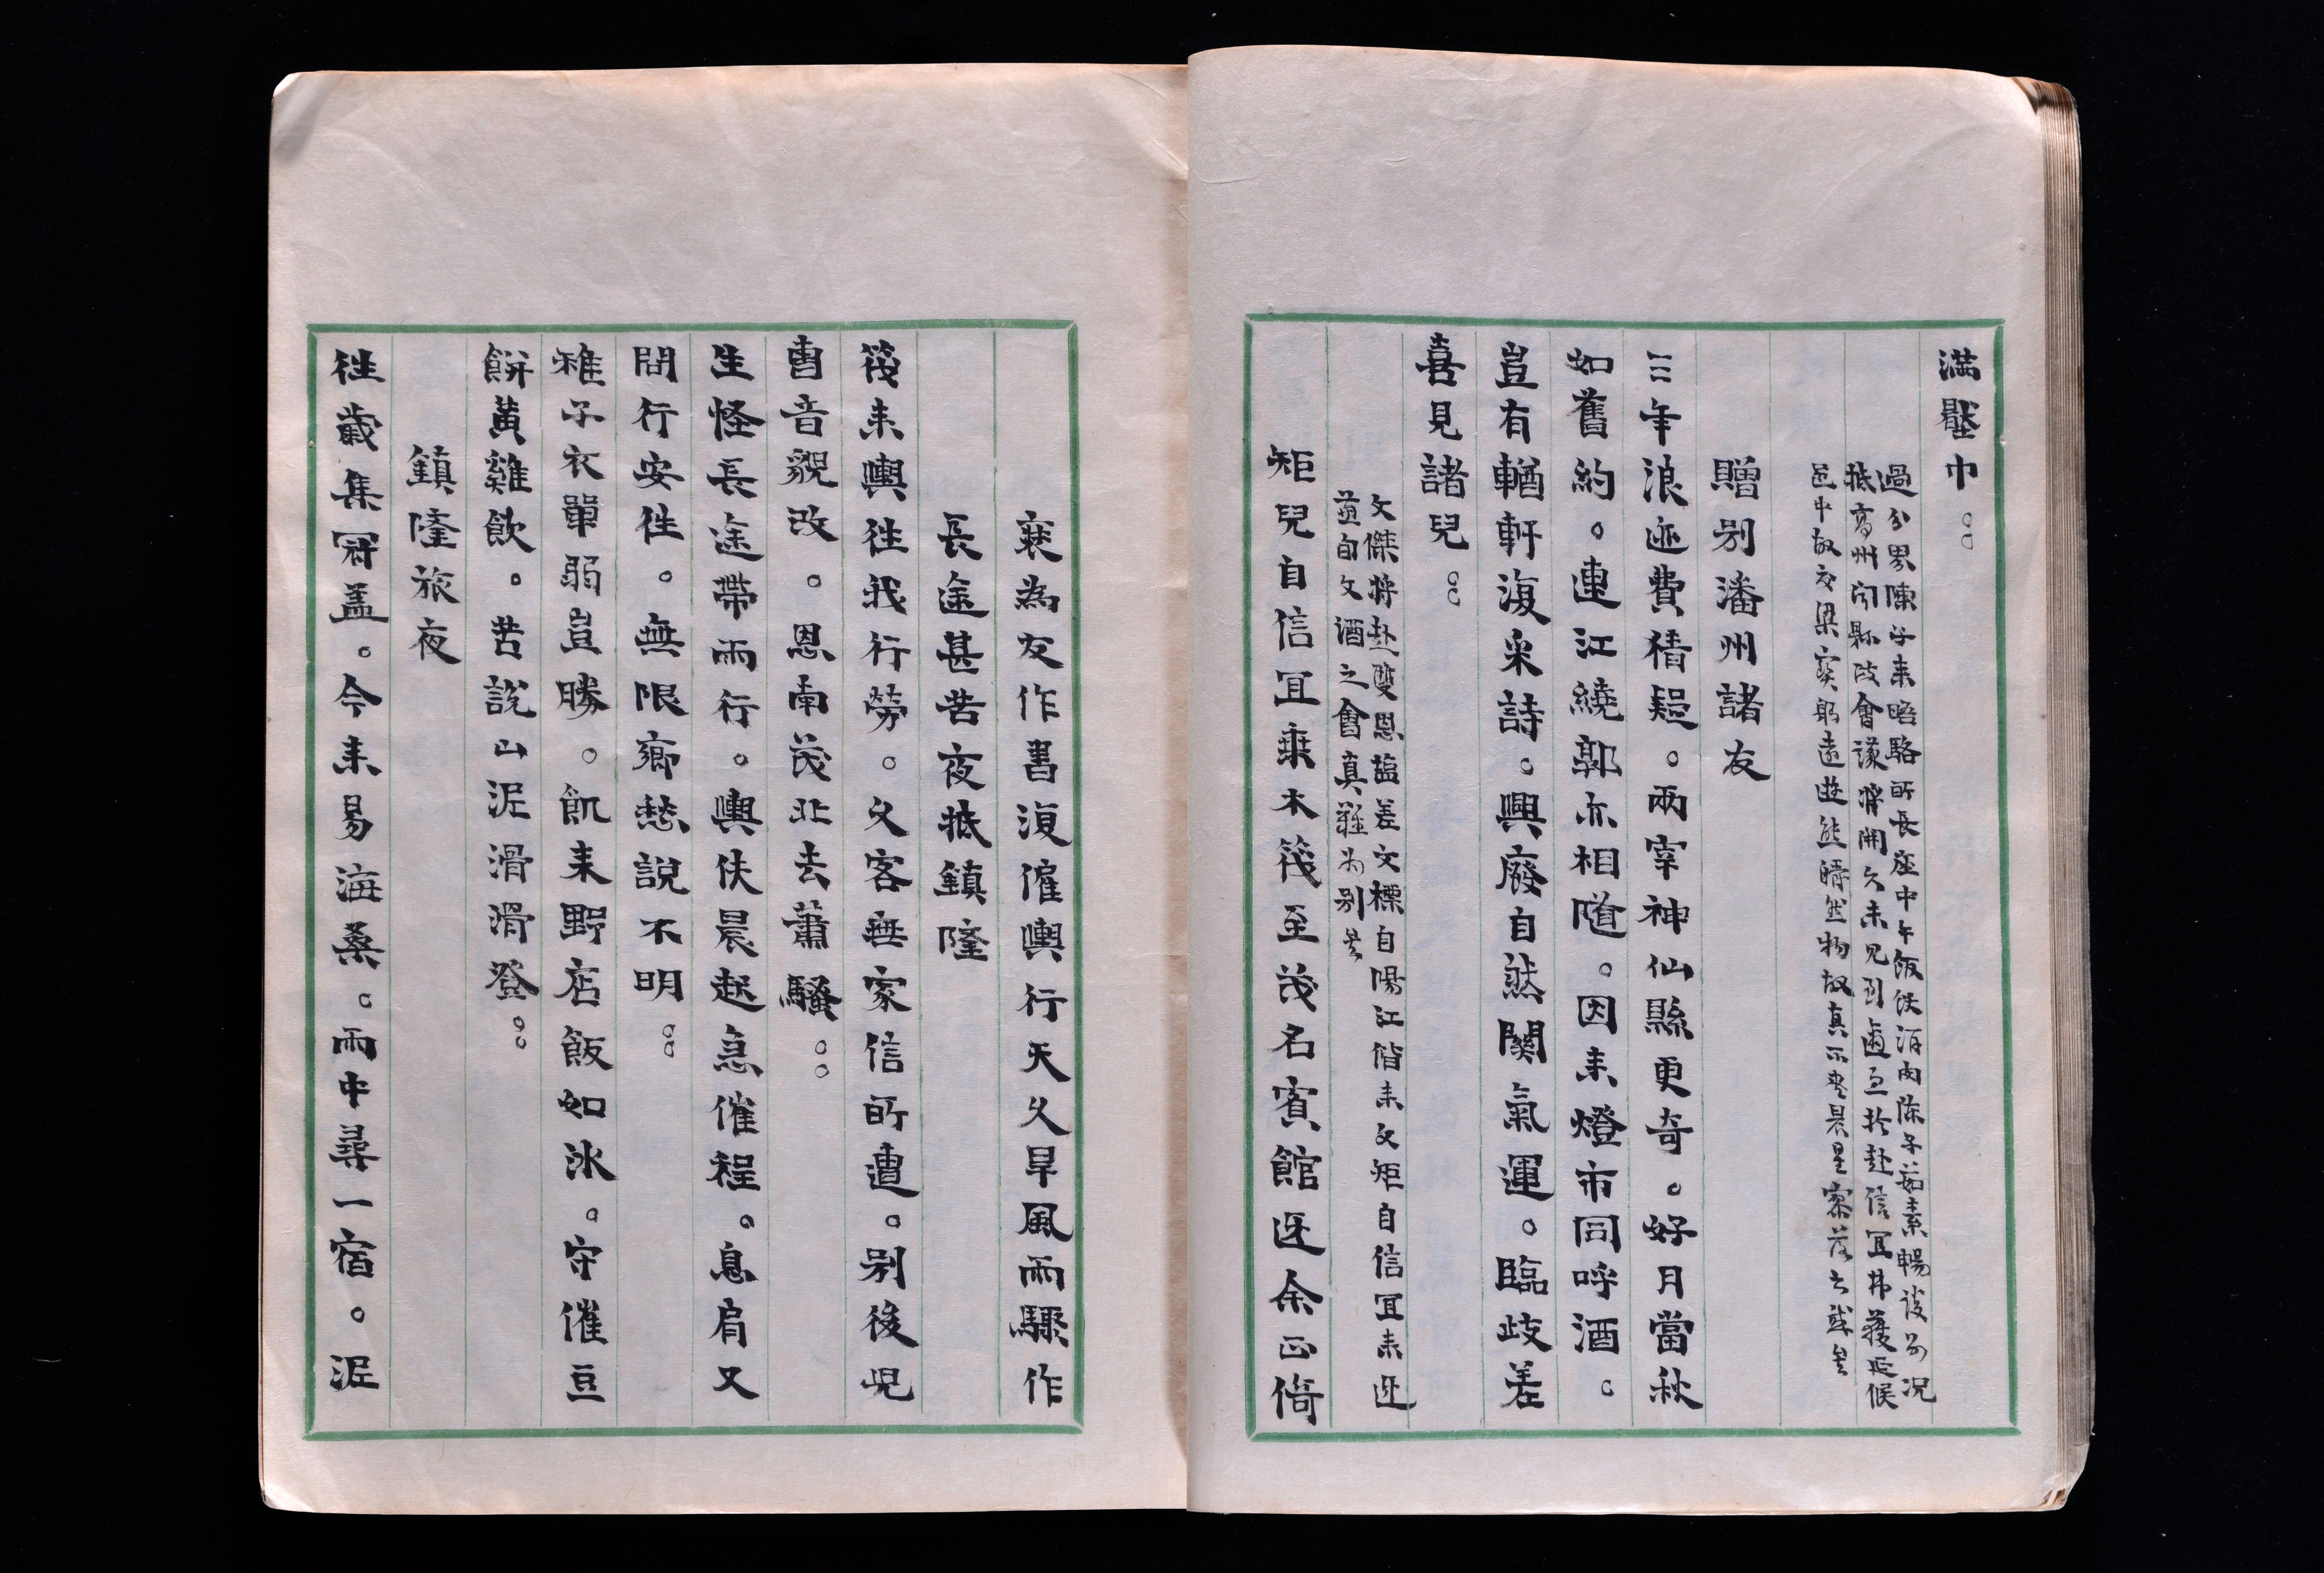 滿壑中。。
過分界陳子来略駱所長座中午飯佐酒肉陳子茹素暢談別況
抵高州間縣政會議將開久未見到適至於赴信宜弗獲延候
邑中故交梁寶躬遠遊熊晴然物故真不啻晨星寥落之感矣
贈別潘州諸友
三年浪迹費猜疑。兩宰神仙縣更奇。好月當秋
如舊約。連江繞郭亦相隨。因来燈市同呼酒。
豈有輶軒復采詩。興廢自然關氣運。臨歧差
喜見諸兒。。
文傑將赴雙恩鹽差文標自陽江偕来文矩自信宜来迓
茲旬文酒之會真難為別矣
矩兒自信宜乗木筏至茂名賓館迓余正倚
裝為友作書復催輿行天久旱風雨驟作
長途甚苦夜抵鎮隆
筏来輿往我行勞。父客無家信所遭。別後兒
曹音貌改。恩南茂北去蕭騷。。
生怪長途帶雨行。輿伕晨起急催程。息肩又
問行安往。無限鄉愁說不明。。
稚子衣單弱豈勝。飢来野店飯如冰。守催豆
餅黃雞飲。苦說山泥滑滑登。。
鎮隆旅夜
往歲集冠蓋。今来易海桑。雨中尋一宿。泥